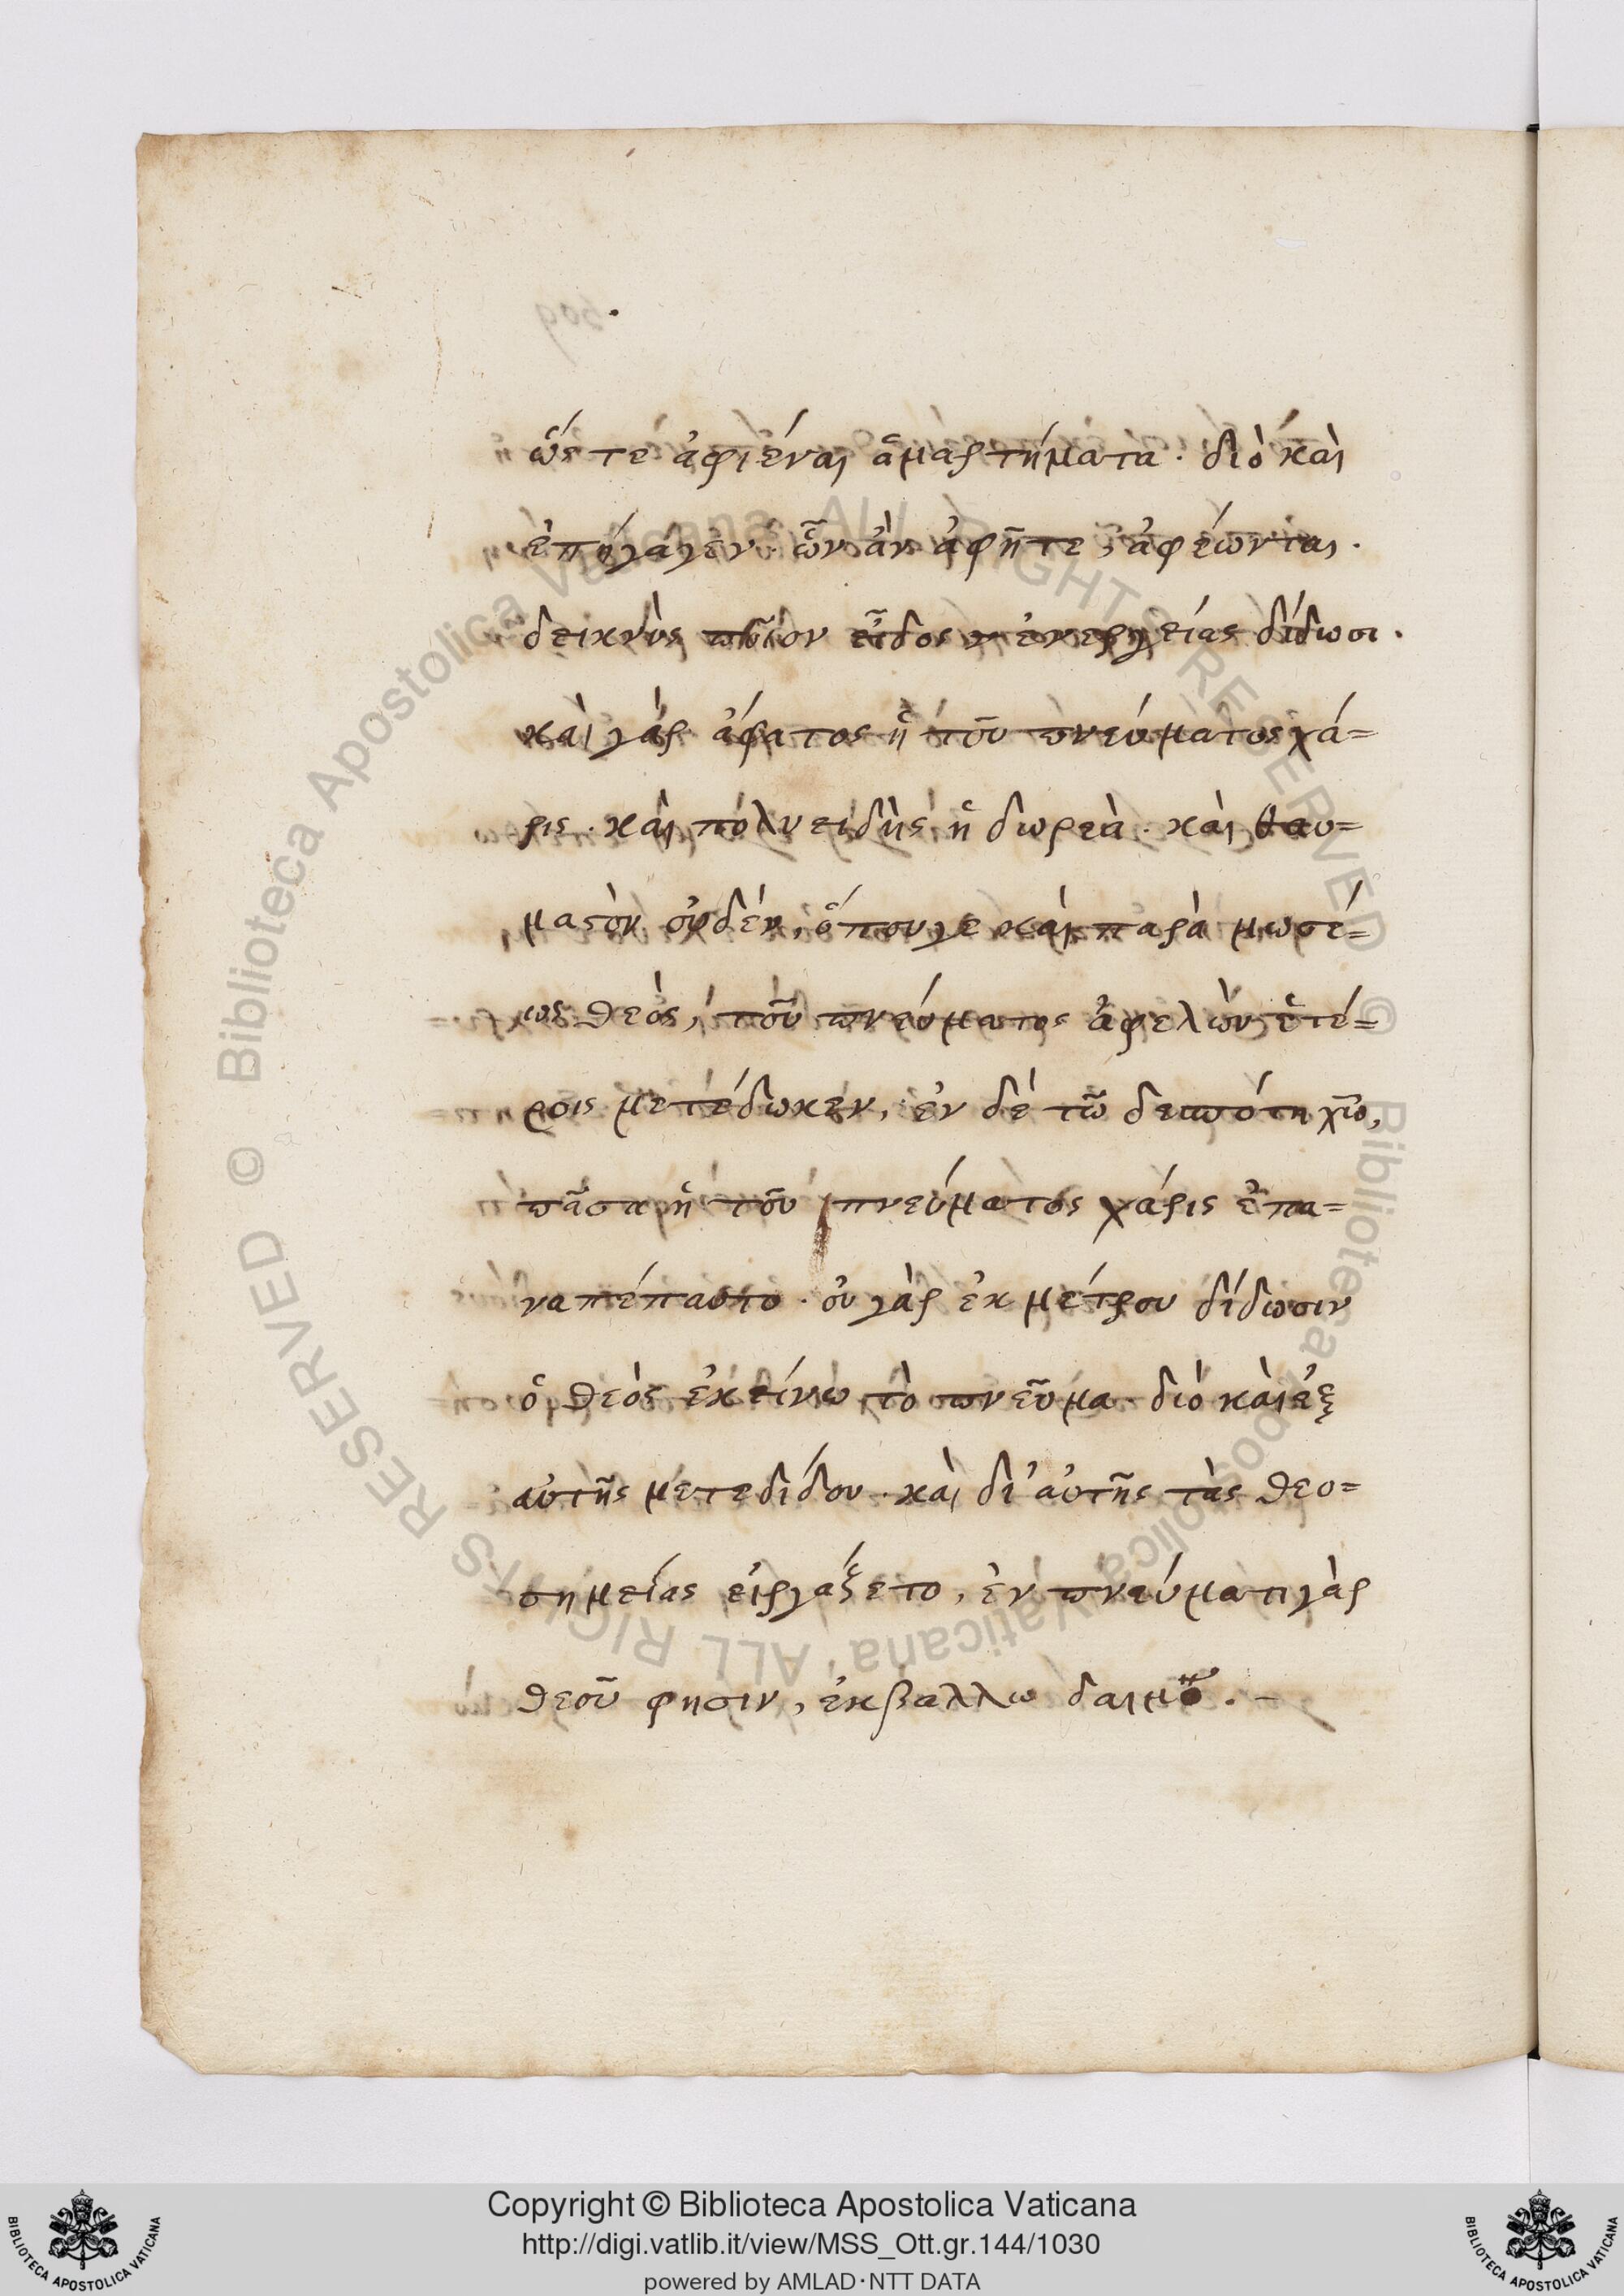 ὥστε ἀφιέναι ἁμαρτήματα. διὸ καὶ
ἐπήγαγεν. ὧν ἂν ἀφῆτε, ἀφέωνται.
δεικνὺς ποῖον εἶδος ἐνεργείας δίδωσι.
καὶ γὰρ ἄφατος ἡ τοῦ πνεύματος χά=
ρις. καὶ πολυειδὴς ἡ δωρεὰ. καὶ θαυ=
μαστὸν οὐδέν, ὅπουγε καὶ παρὰ μωσέ=
ως θεὸς, τοῦ πνεύματος ἀφελὼν ἑτέ=
ροις μετέδωκεν, ἐν δὲ τῶ δεσπότη χῶ,
πᾶσα ἡ τοῦ πνεύματος χάρις ἐπα=
ναπέπαυτο. οὐ γὰρ ἐκ μέτρου δίδωσιν
ὁ θεὸς ἐκείνω τὸ πνεῦμα. διὸ καὶ ἐξ
αὐτῆς μετεδίδου. καὶ δι' αὐτῆς τὰς θεο=
σημείας εἰργάζετο, ἐν πνεύματι γὰρ
θεοῦ φησιν, ἐκβάλλω δαιμο. –
© Biblioteca Apostolica Vaticana, ALL RIGHTS RESERVED
© Biblioteca Apostolica Vaticana, ALL RIGHTS RESERVED
Copyright © Biblioteca Apostolica Vaticana
http://digi.vatlib.it/view/MSS_Ott.gr.144/1030
powered by AMLAD·NTT DATA
BIBLIOTECA APOSTOLICA VATICANA
BIBLIOTECA APOSTOLICA VATICANA